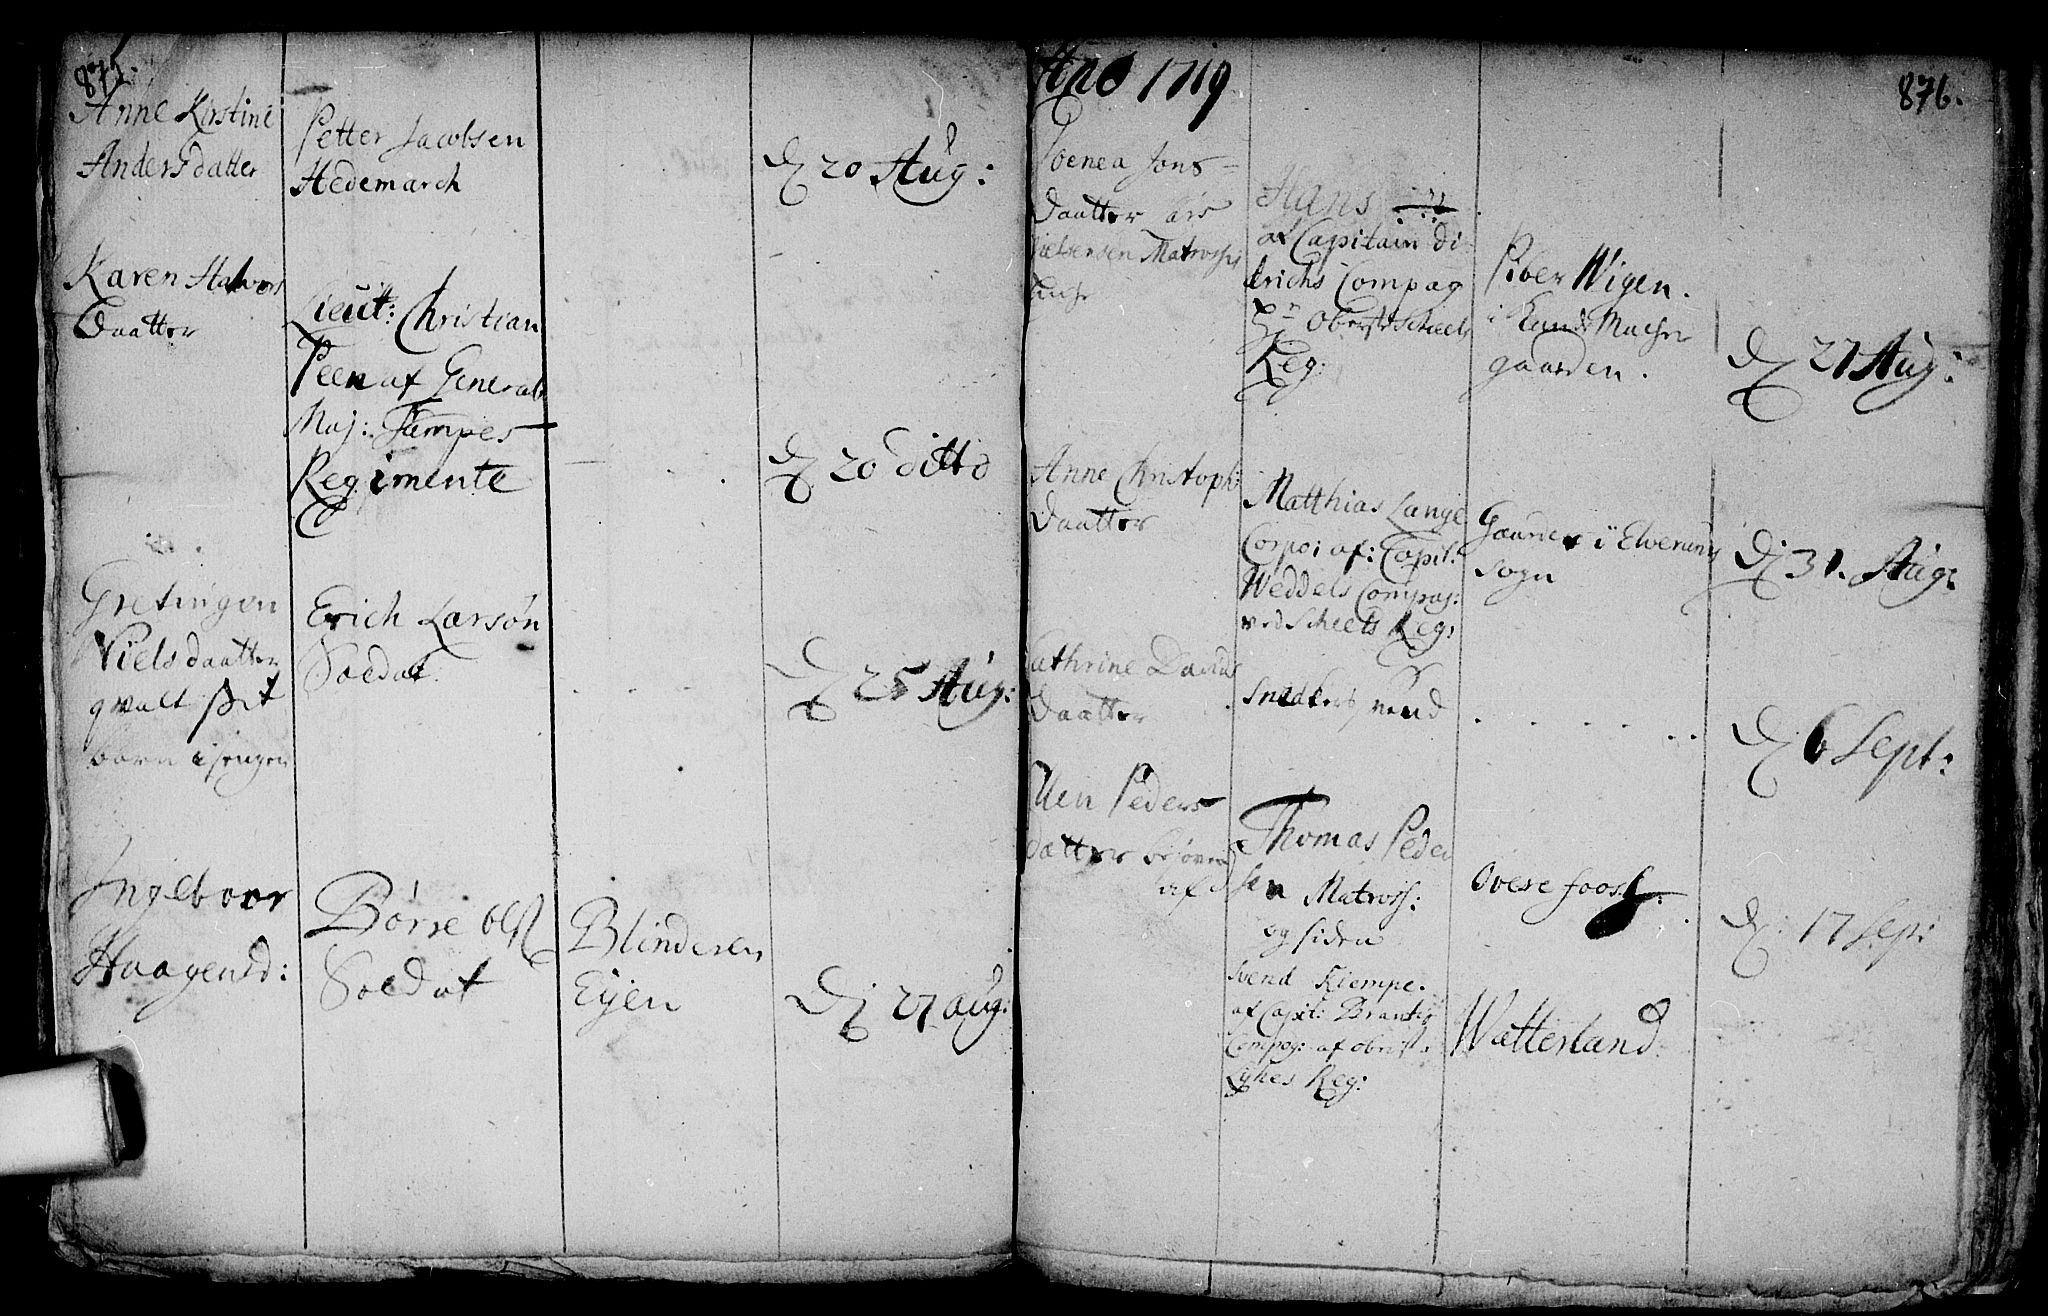 875.
Anne Kirstine
Anders datter
Petter Jacobsen
Hedemarch
20 Aug:
Karen Halvors
Daatter
Lieut: Christian
Peen af General
Maj: Tampes
Regimente
20 Ditto
Gretingen
Niels daatter
qvalt sit
barn i sengen
Erich Larsøn
Soldat
25 Aug:
Ingeboer
Haagensd:
Børre Ols
Soldat
Blinderen
Eyen
27 aug:
Ano 1719
876.
Jons-
Daatter
Matrosses
Hans
af Capitain Di-
derichs Compag
Oberst Scheels
Reg:
Piber Wigen.
i
gaarden.
27 Aug:
Anne Christoph:
Daatter
Matthias Lange
Corpo: af: Capit:
Weddels Compag:
ved Scheels Reg:
Gaarder i Elverums
Sogn
31. Aug:
Cathrine Davids
Daatter
Snedker svend
6 Sept:
Ellen Peders
datter besøven
af
Thomas Peder
sen Matross:
og siden
Svend Kiempe.
af Capit: Brantz
Compag: af obrist
Lykes Reg:
Overe foss:
Watterland.
17 Sep: